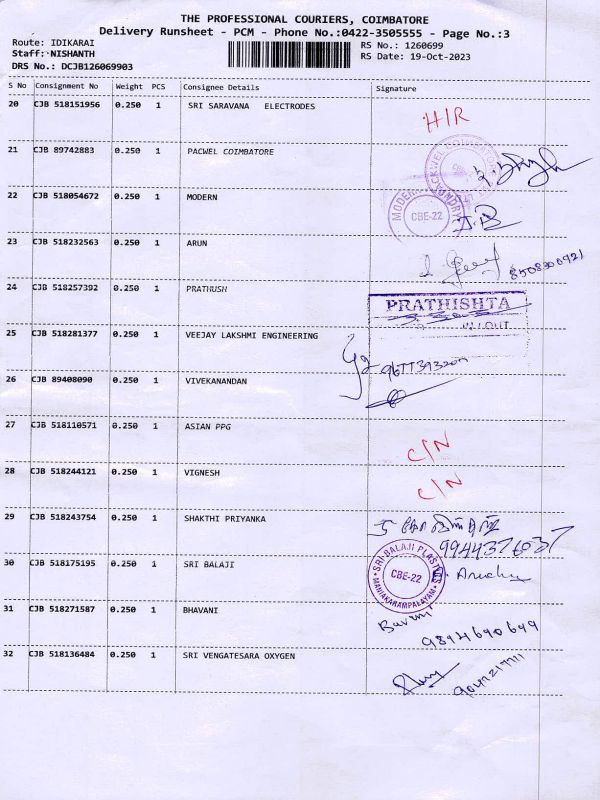 THE PROFESSIONAL COURIERS, COIMBATORE
Delivery Runsheet - PCM - Phone No.:0422-3505555 - Page No.:3
Route: IDIKARAI RS No.: 1260699
Staff: NISHANTH RS Date: 19-Oct-2023
DRS No.: DCJB126069903
S No Consignment No Weight PCS Consignee Details Signature
20 CJB 518151956 0.250 1 SRI SARAVANA ELECTRODES
H/R
21 CJB 89742883 0.250 1 PACWEL COIMBATORE
22 CJB 518054672 0.250 1 MODERN
MODERN CBE-22
23 CJB 518232563 0.250 1 ARUN
8508300921
24 CJB 518257392 0.250 1 PRATHUSH
PRATHISHTA
25 CJB 518281377 0.250 1 VEEJAY LAKSHMI ENGINEERING
26 CJB 89408090 0.250 1 VIVEKANANDAN
27 CJB 518110571 0.250 1 ASIAN PPG
C/N
28 CJB 518244121 0.250 1 VIGNESH
C/N
29 CJB 518243754 0.250 1 SHAKTHI PRIYANKA
9944376037
30 CJB 518175195 0.250 1 SRI BALAJI
SRI BALAJI PLASTICS CBE-22 MANIAKARAMPALAYAM
31 CJB 518271587 0.250 1 BHAVANI
9894690649
32 CJB 518136484 0.250 1 SRI VENGATESARA OXYGEN